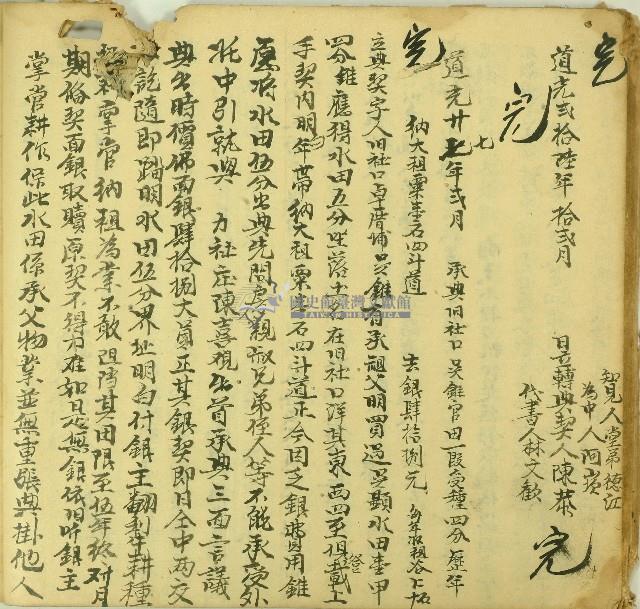 完
智見人堂弟德江
為中人阿炭
道光貳拾陸年拾貳月 日立轉典契人陳恭
代書人林文歡
完
完
道光廿七年貳月 承典旧社口吳錐官田一段受種四分 歷年
納大租粟壹石四斗道 去銀肆拾捌元
完
立典契字人旧社口卓厝埔吳錐有承祖父明買過吳顯水田壹甲
四分錐應得水田五分坐落土名在旧社口洋其東西四至俱登載上
手契內明年帶納大租粟 石四斗道正今因乏銀費用錐
愿將水田伍分出典先問房親叔兄弟侄人等不能承受外
托中引就與 力社庄陳喜觀出首承典三面言議
典出時價佛面銀肆拾捌大員正其銀契即日仝中兩交
訖隨即踏明水田伍分界址明白付銀主 耕種
掌管納租為業不敢阻隔其田限至伍年終對月
期備契面銀取贖原契不得刁难如是無銀依旧听銀主
掌管耕作保此水田係承父物業並無重張典掛他人
國史館臺灣文獻館
TAIWAN HISTORICA